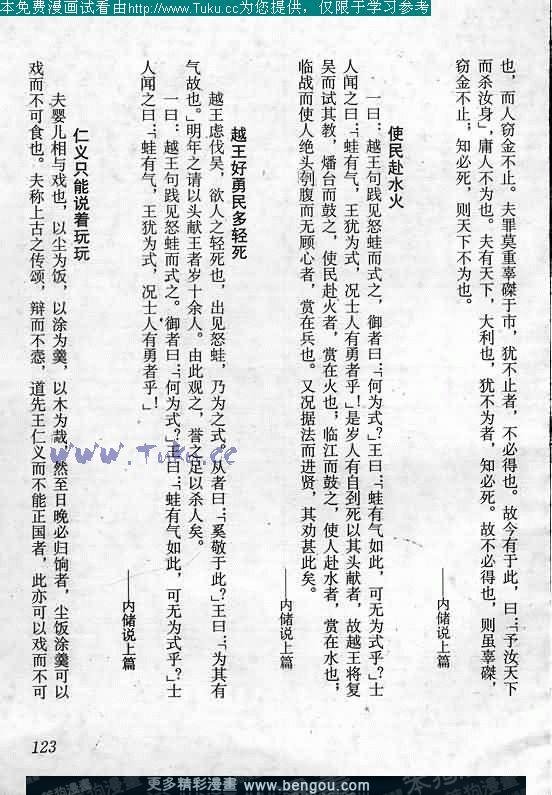 本免费漫画试看由http://www.Tuku.cc为您提供，仅限于学习参考
也，而人窃金不止。夫罪莫重辜磔于市，犹不止者，不必得也。故今有于此，曰：“予汝天下
而杀汝身”，庸人不为也。夫有天下，大利也，犹不为者，知必死。故不必得也，则虽辜磔，
窃金不止；知必死，则天下不为也。
——内储说上篇
使民赴水火
一曰：越王句践见怒蛙而式之，御者曰：“何为式？”王曰：“蛙有气如此，可无为式乎？”士
人闻之曰：“蛙有气，王犹为式，况士人有勇者乎！”是岁人有自刭死以其头献者，故越王将复
吴而试其教，燔台而鼓之，使民赴火者，赏在火也；临江而鼓之，使人赴水者，赏在水也；
临战而使人绝头刳腹而无顾心者，赏在兵也。又况据法而进贤，其劝甚此矣。
——内储说上篇
越王好勇民多轻死
越王虑伐吴，欲人之轻死也，出见怒蛙，乃为之式。从者曰：“奚敬于此？”王曰：“为其有
气故也。”明年之请以头献王者岁十余人。由此观之，誉之足以杀人矣。
一曰：越王句践见怒蛙而式之。御者曰：“何为式？”王曰：“蛙有气如此，可无为式乎？”士
人闻之曰：“蛙有气，王犹为式，况士人有勇者乎！”
——内储说上篇
仁义只能说着玩玩
夫婴儿相与戏也，以尘为饭，以涂为羹，以木为胾，然至日晚必归饷者，尘饭涂羹可以
戏而不可食也。夫称上古之传颂，辩而不悫，道先王仁义而不能正国者，此亦可以戏而不可
www.Tuku.cc
123
更多精彩漫畫 www.bengou.com